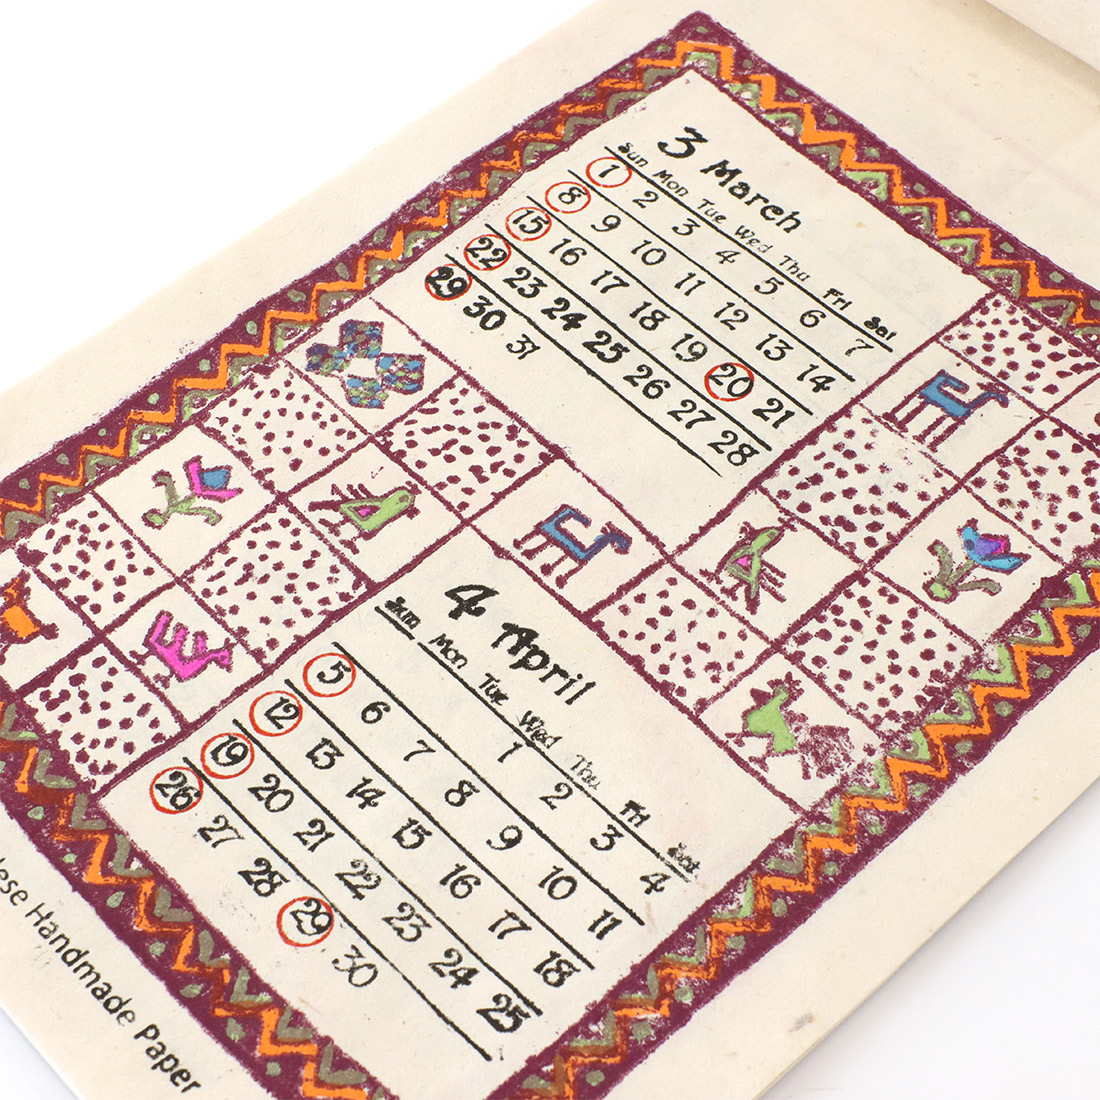 3 March
Sun Mon Tue Wed Thu Fri Sat
1 2 3 4 5 6 7
8 9 10 11 12 13 14
15 16 17 18 19 20 21
22 23 24 25 26 27 28
29 30 31
4 April
Sun Mon Tue Wed Thu Fri Sat
1 2 3 4
5 6 7 8 9 10 11
12 13 14 15 16 17 18
19 20 21 22 23 24 25
26 27 28 29 30
lese Handmade Paper